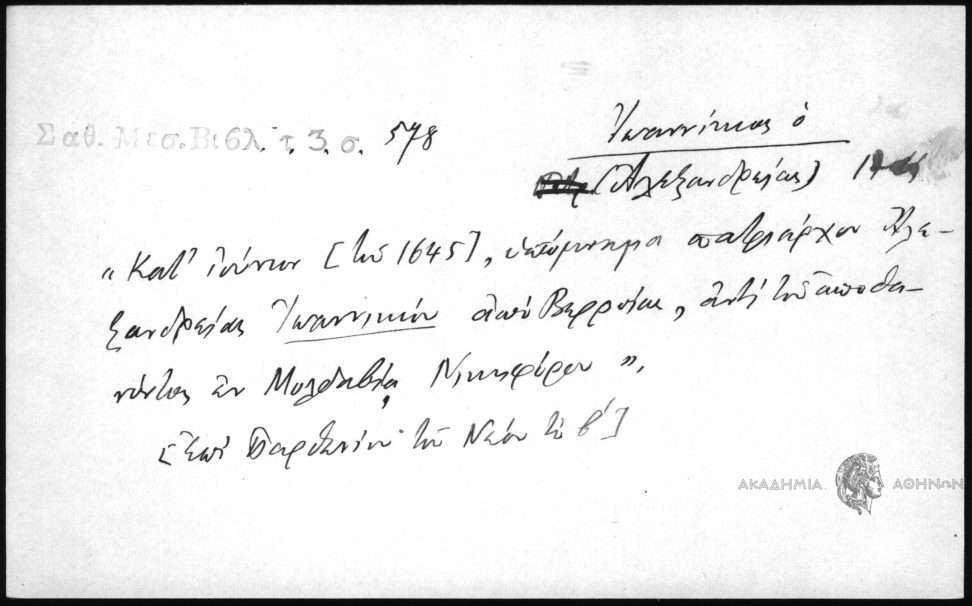 Σαθ. Μεσ. Βιβλ. τ. 3. σ. 578
Ἰωαννίκιος ὁ
(Ἀλεξανδρείας) 17
"Κατ' ἰούνιον [τοῦ 1645], ὑπόμνημα πατριάρχου Ἀλε-
ξανδρείας Ἰωαννικίου ἀπὸ Βερροίας, ἀντὶ τοῦ ἀποθα-
νόντος ἐν Μολδαβίᾳ Νικηφόρου",
[Ἐπὶ Παρθενίου τοῦ Νέου τοῦ β']
ΑΚΑΔΗΜΙΑ ΑΘΗΝΩΝ